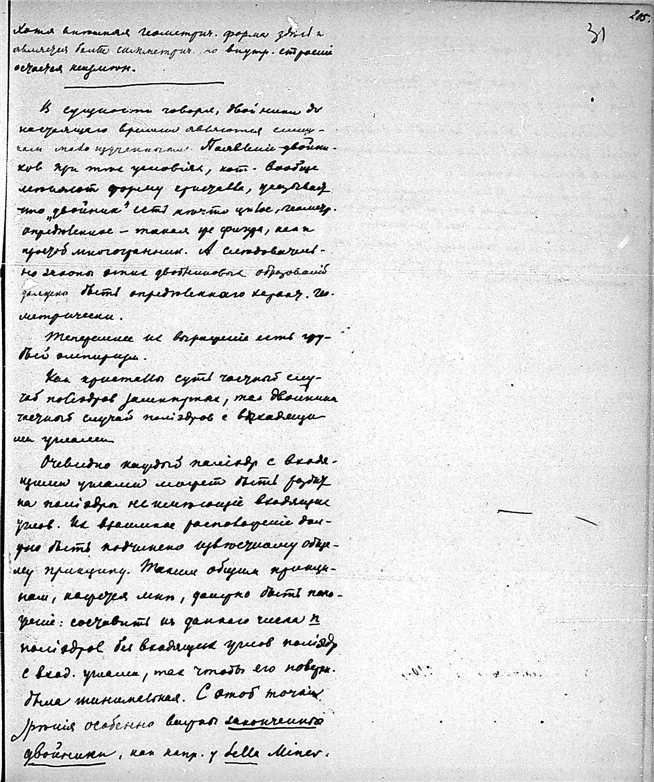 205.
31
Хотя внешная геометрич. форма здесь и
является более симметрич., но внутр. строение
остается неизмен.
В сущности говоря, двойники до
настоящаго времени являются
мало изученными. Появление двойни-
ков при тех условиях, кот. вообще
меняют форму кристалла, указывает
что „двойник“ есть нечто целое, геометр.
определенное – такая же фигура, как и
простой многогранник. А следователь-
но законы этих двойниковых образований
должно быть определеннаго характ. гео-
метрически.
Теперешнее их выражение есть гру-
бый эмпиризм.
Как кристаллы суть частный слу-
чай полиэдров замкнутых, так двойники
частный случай поліэдров с входящи-
ми углами
Очевидно каждый поліэдр с входя-
щими углами может быть разбит
на поліэдры не имеющіе входящих
углов. Их взаимное расположеніе дол-
жно быть подчинено известному обще-
му принципу. Таким общим принци-
пом, кажется мне, должно быть поло-
жение: составить из даннаго числа n
поліэдров без входящих углов поліэдр
с вход. углами, так чтобы его поверхн.
была минимальная. С этой точки
зрения особенно важны законченные
двойники, как напр. у